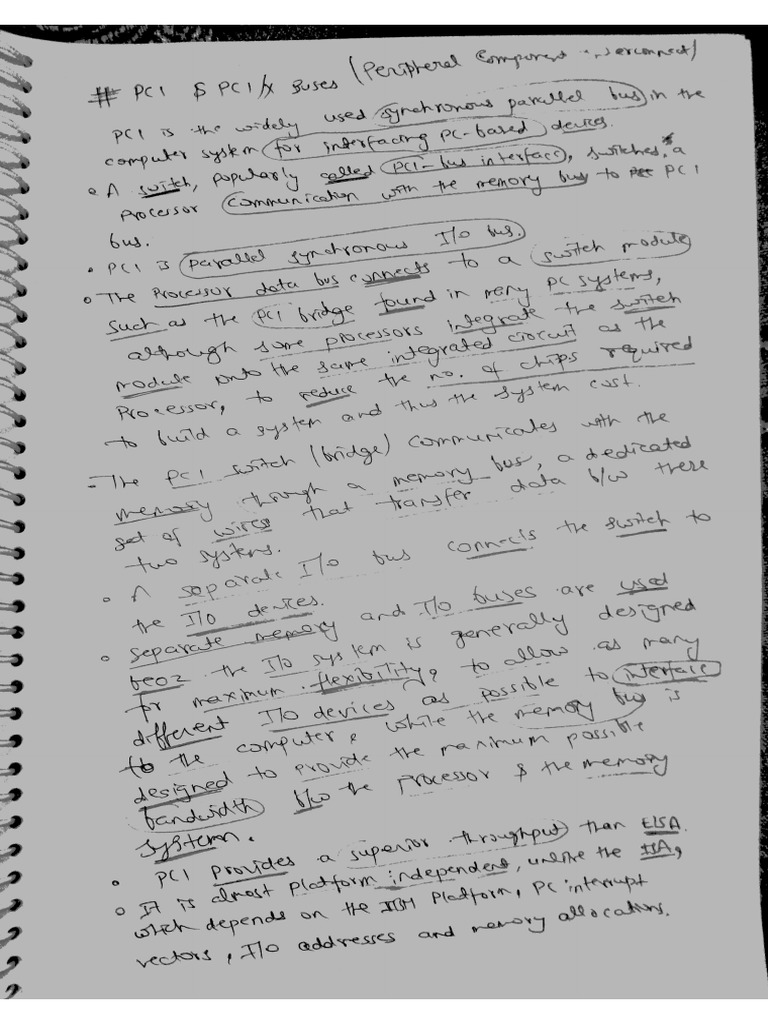 # PCI & PCI/X Buses (Peripheral Component Interconnect)
PCI is the widely used synchronous parallel bus in the
computer system for interfacing PC-based devices.
• A switch, popularly called PCI-bus interface, switches a
processor communication with the memory bus to PCI
bus.
• PCI is parallel synchronous I/O bus.
• The Processor data bus connects to a switch module
such as the PCI bridge found in many PC systems,
although some processors integrate the switch
module onto the same integrated circuit as the
Processor, to reduce the no. of chips required
to build a system and thus the system cost.
- The PCI switch (bridge) communicates with the
memory through a memory bus, a dedicated
set of wires that transfer data b/w there
two systems.
• A separate I/o bus connects the switch to
the I/o devices.
• separate memory and I/o buses are used
the I/o system is generally designed
for maximum flexibility, to allow as many
different I/o devices as possible to interface
to the computer, while the memory bus is
designed to provide the maximum possible
bandwidth b/w the processor & the memory
system.
• PCI provides a superior throughput than EISA.
• It is almost platform independent, unlike the ISA,
which depends on the IBM Platform, PC interrupt
vectors, I/o addresses and memory allocations.